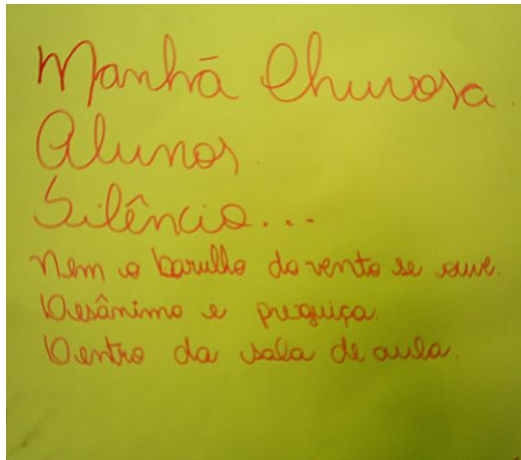 Manhã Chuvosa.
Alunos.
Silêncio...
Nem o barulho do vento se ouve.
Desânimo e preguiça.
Dentro da sala de aula.